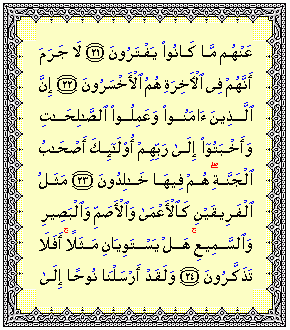 عَنْهُم مَّا كَانُوا۟ يَفْتَرُونَ ٢١ لَا جَرَمَ
أَنَّهُمْ فِى ٱلْءَاخِرَةِ هُمُ ٱلْأَخْسَرُونَ ٢٢ إِنَّ
ٱلَّذِينَ ءَامَنُوا۟ وَعَمِلُوا۟ ٱلصَّـٰلِحَـٰتِ
وَأَخْبَتُوٓا۟ إِلَىٰ رَبِّهِمْ أُو۟لَـٰٓئِكَ أَصْحَـٰبُ
ٱلْجَنَّةِ ۖ هُمْ فِيهَا خَـٰلِدُونَ ٢٣ مَثَلُ
ٱلْفَرِيقَيْنِ كَٱلْأَعْمَىٰ وَٱلْأَصَمِّ وَٱلْبَصِيرِ
وَٱلسَّمِيعِ ۚ هَلْ يَسْتَوِيَانِ مَثَلًا ۚ أَفَلَا
تَذَكَّرُونَ ٢٤ وَلَقَدْ أَرْسَلْنَا نُوحًا إِلَىٰ